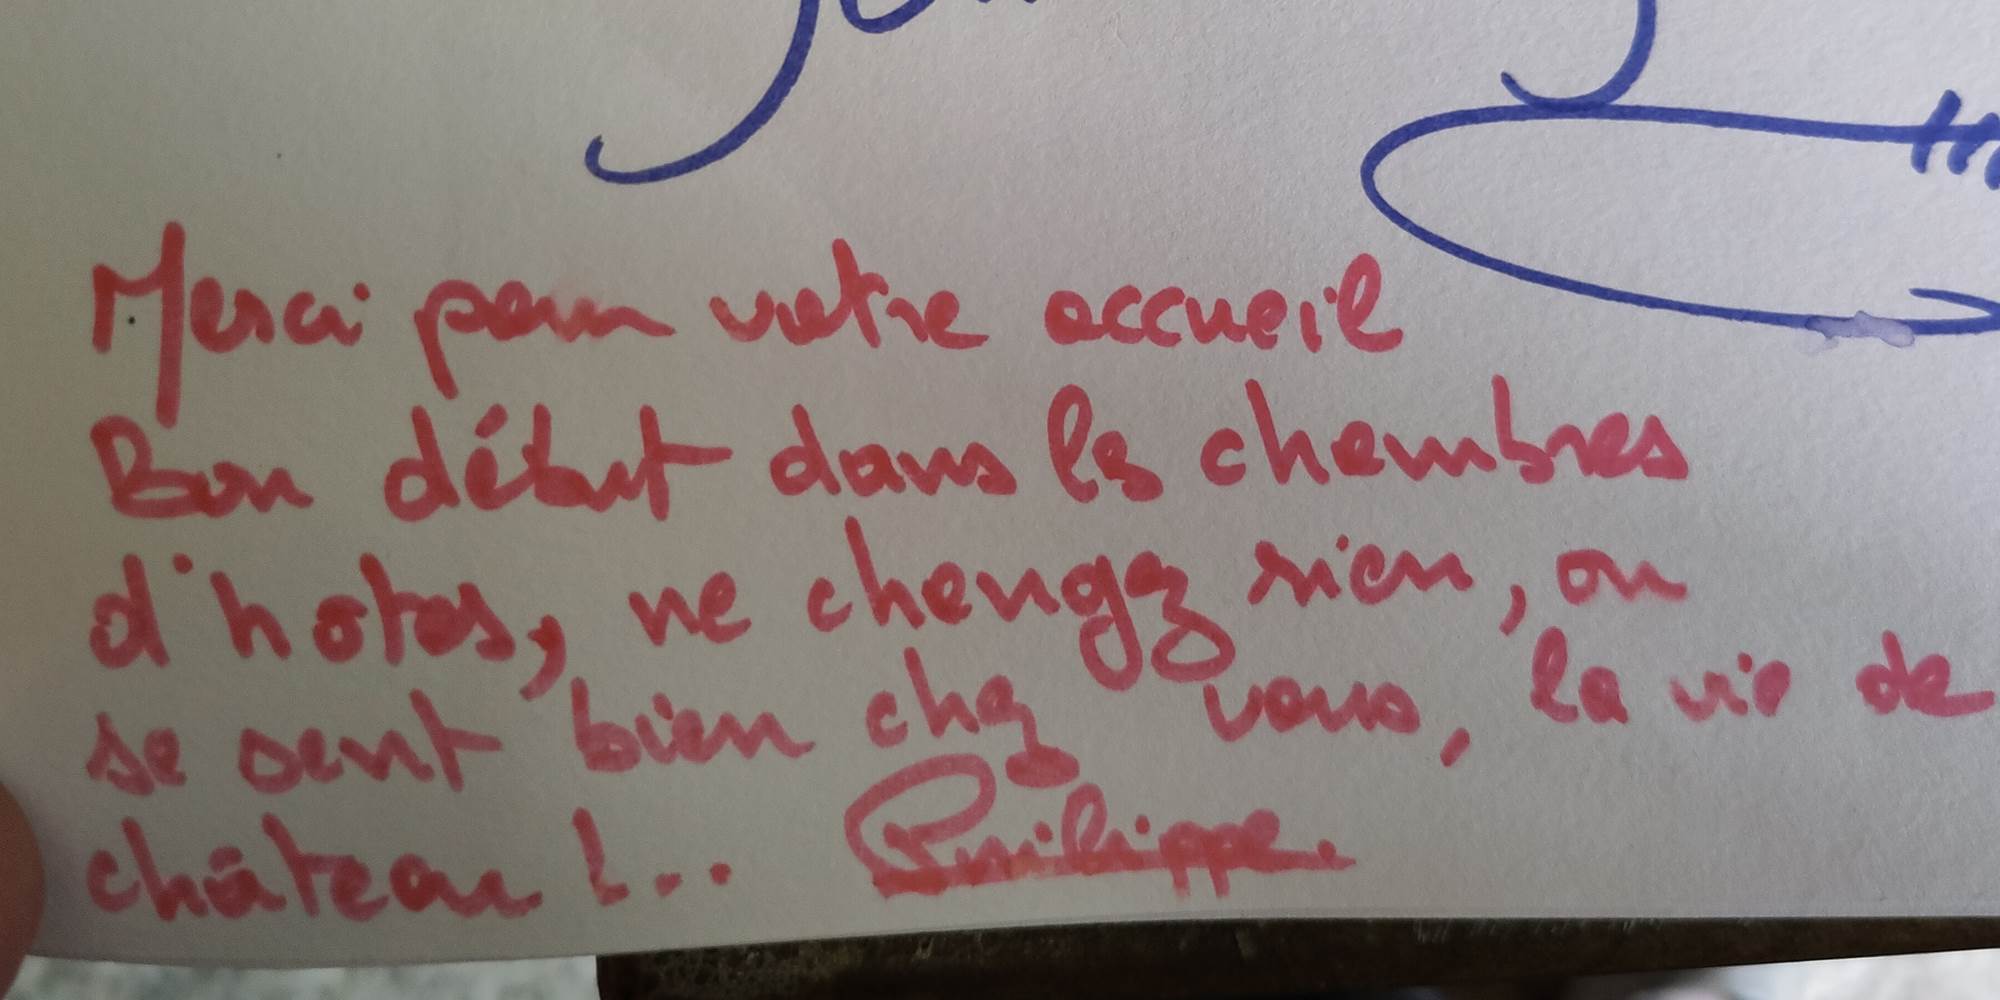 Merci pour votre accueil
Bon début dans les chambres
d'hotes, ne changez rien, on
se sent bien chez vous, la vie de
château !..
Philippe.